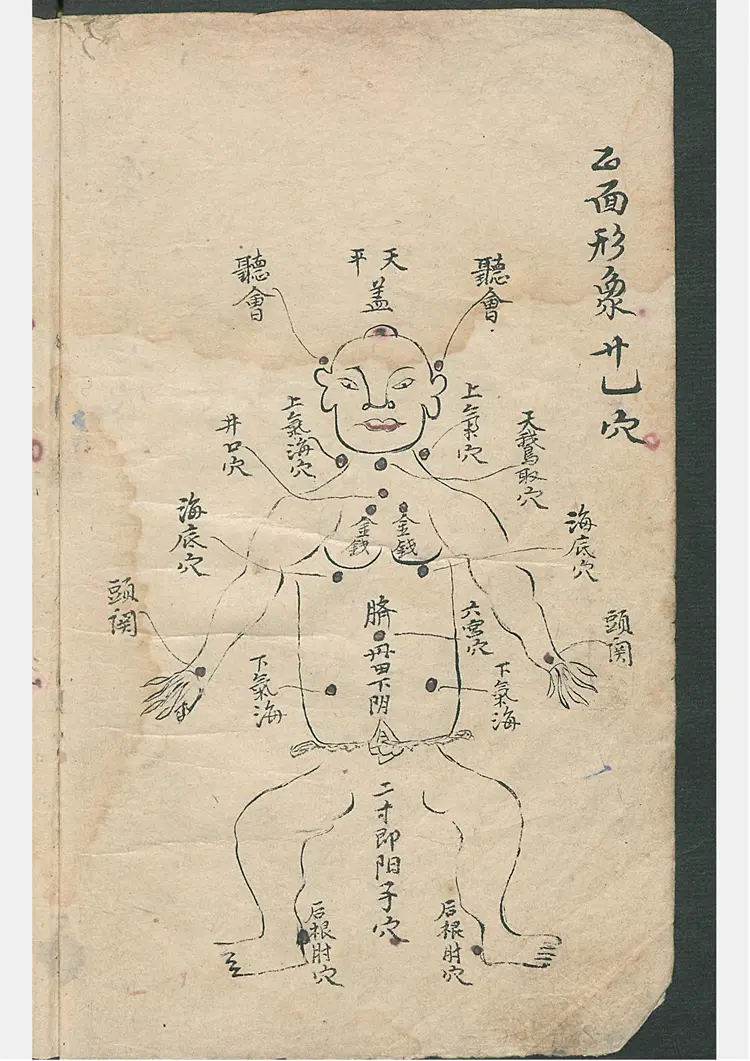 正面形象廿乚穴
天
平
蓋
聽會
聽會
上氣穴
上氣海穴
天鵝取穴
井口穴
金錢
金錢
海底穴
海底穴
頭関
頭関
臍
六宮穴
丹田下阴
下氣海
下氣海
二寸即阳子穴
后根肘穴
后根肘穴